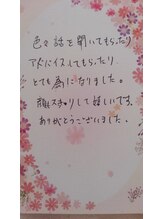 色々話を聞いてもらったり
アドバイスしてもらったり
とても為になりました。
顔スッキリして嬉しいです。
ありがとうございました。